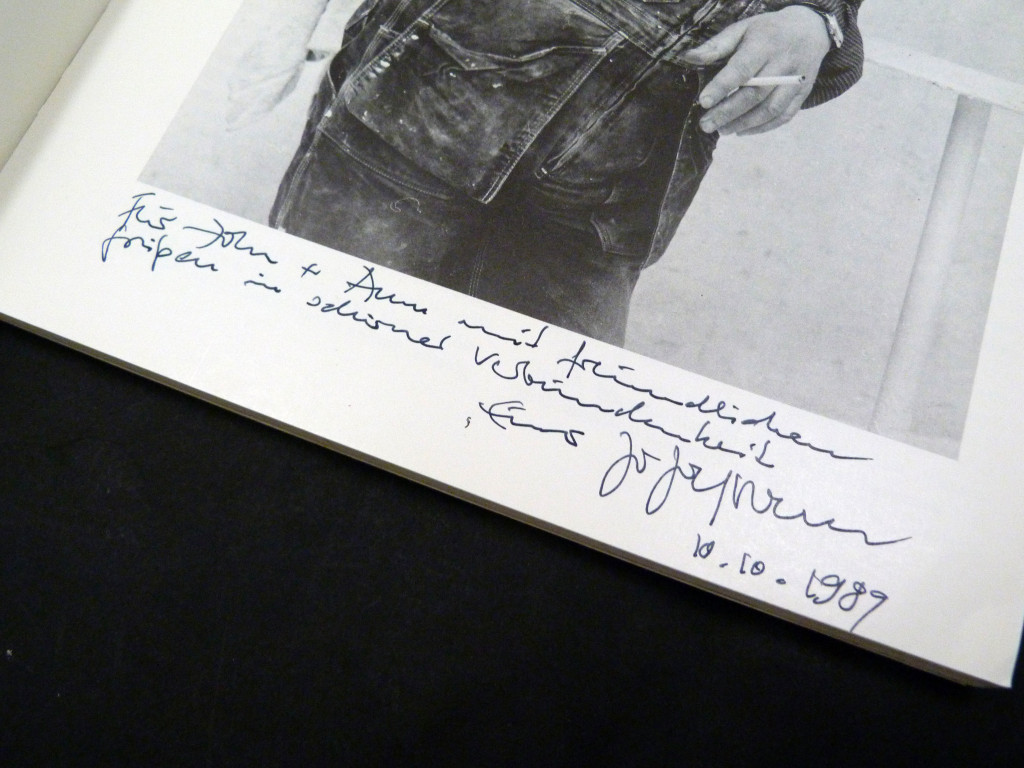 Für John + Ann mit freundlichen
Grüßen in schöner Verbundenheit
Euer Jo Jastram
10.10.1989